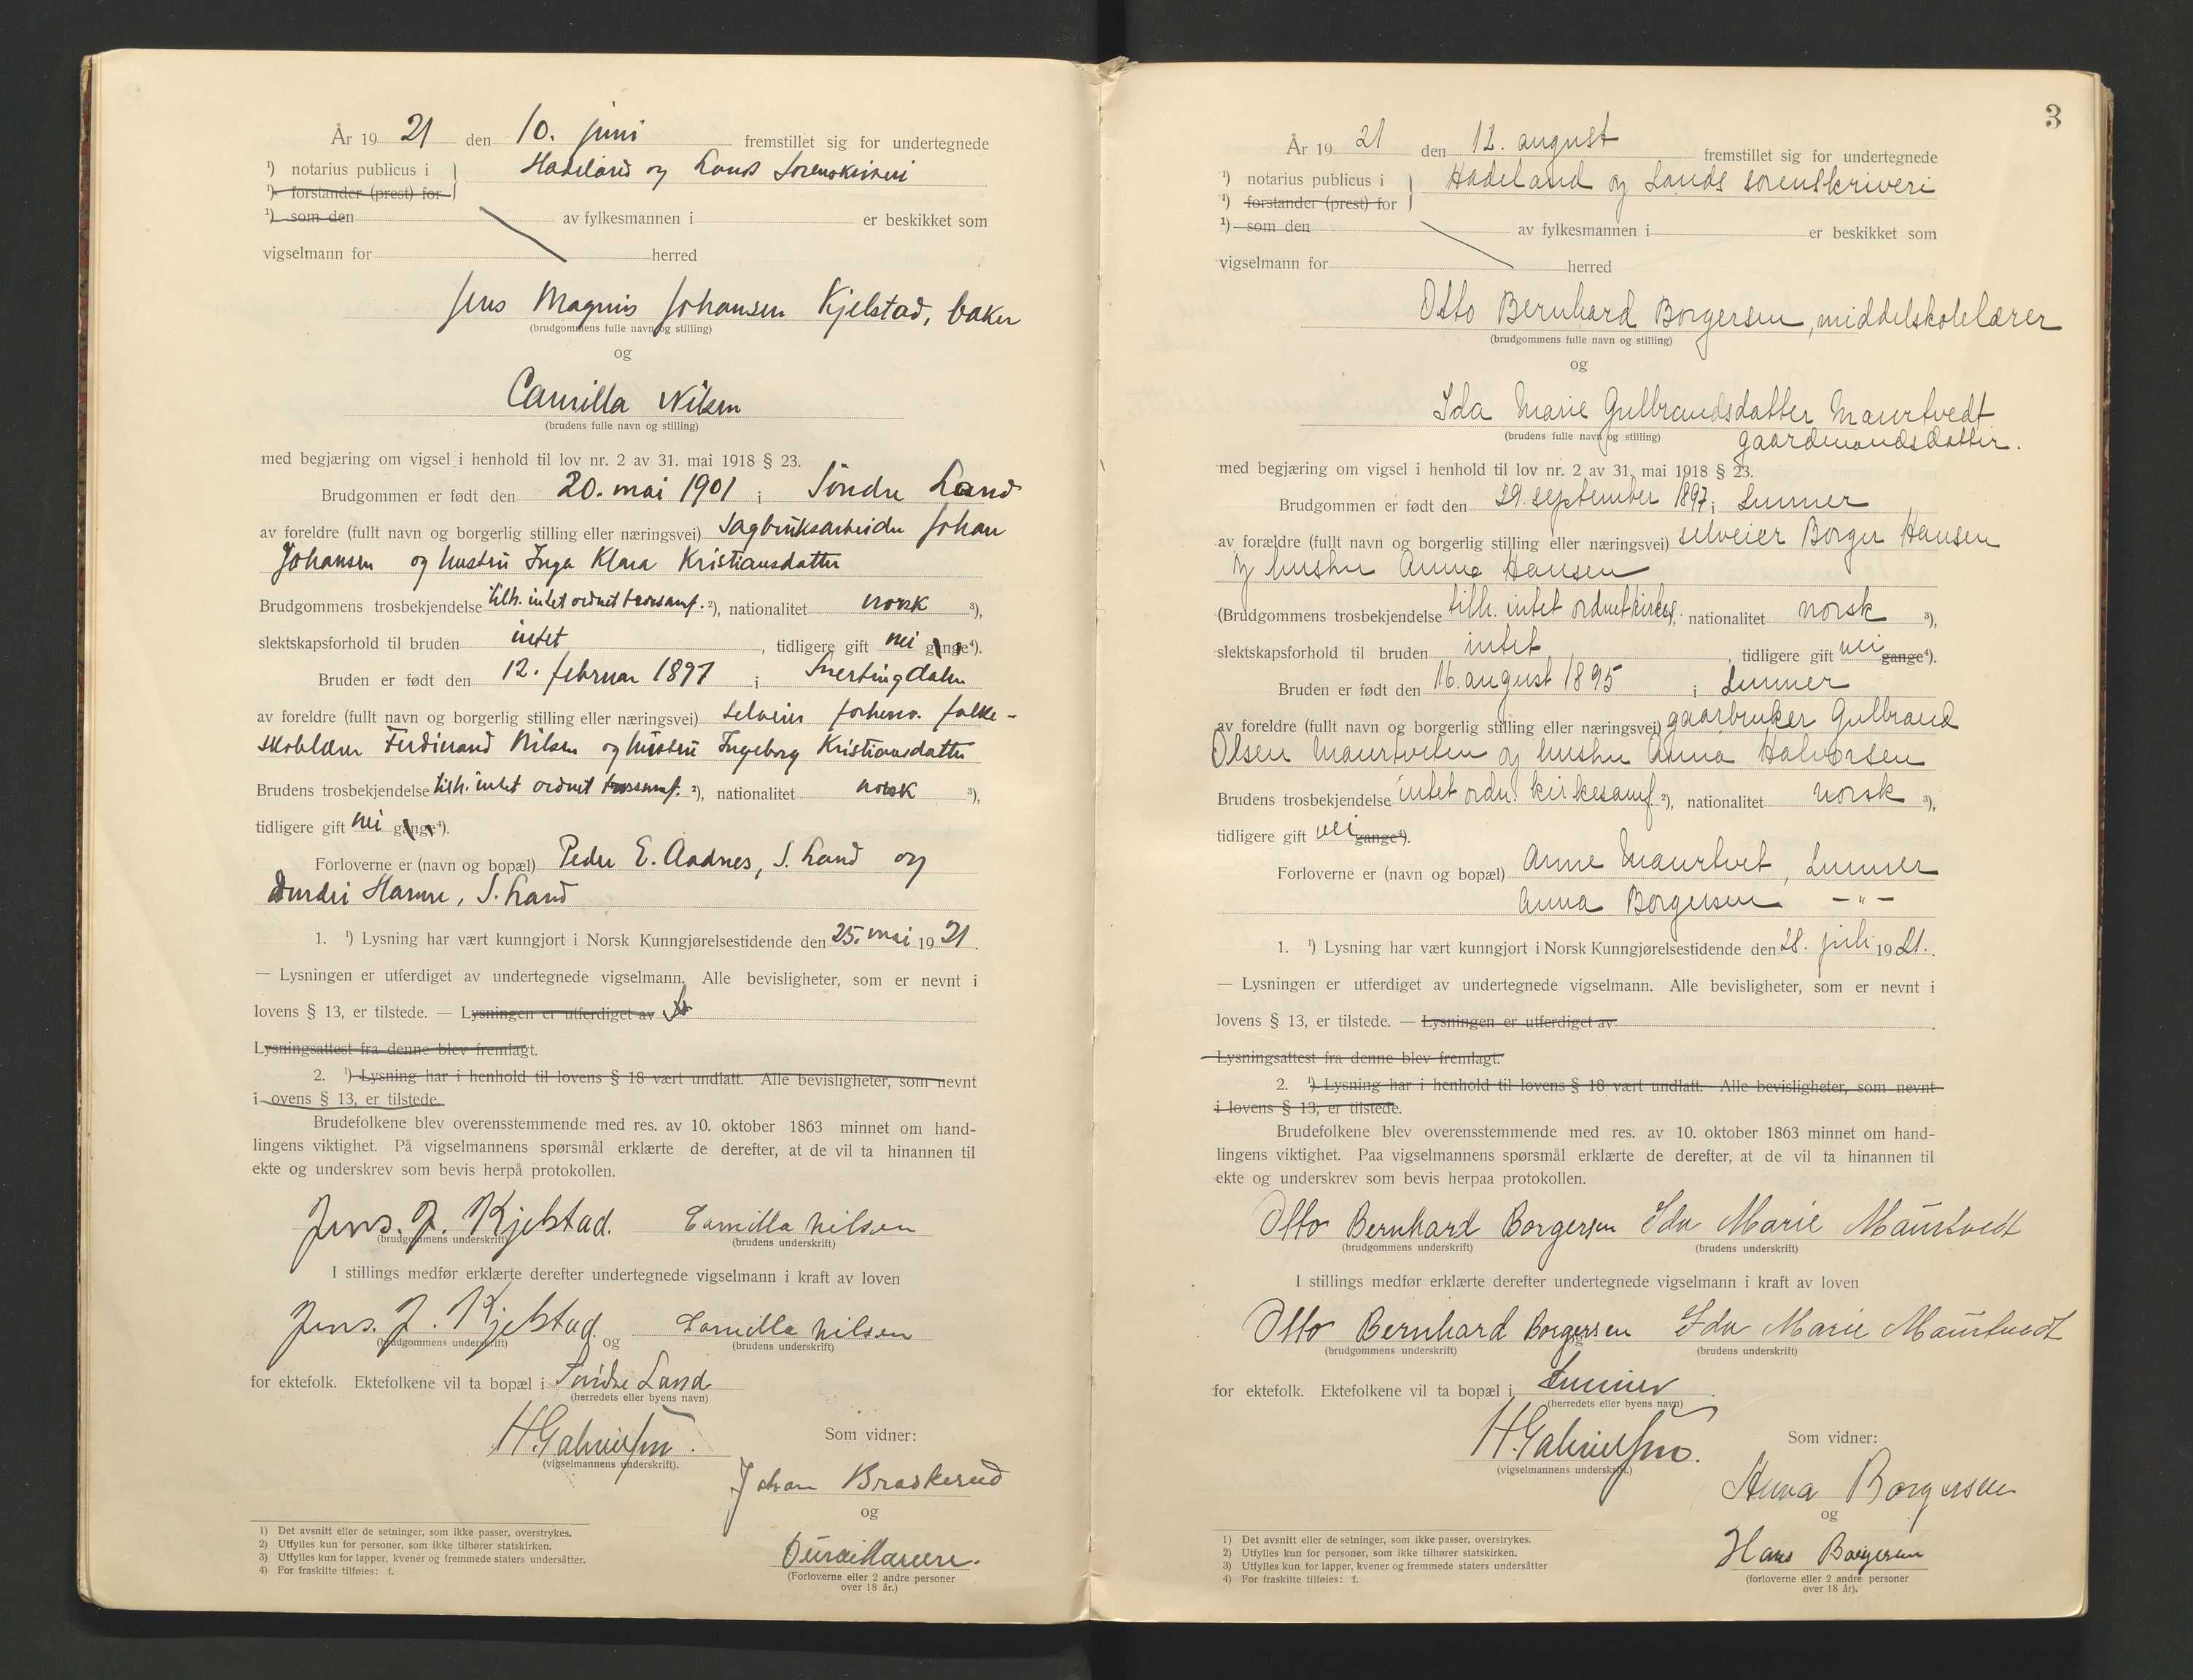 År 19 21 den 10. juni fremstillet sig for undertegnede
¹) notarius publicus i Hadeland og Lands Sorenskriveri
¹) forstander (prest) for
¹) som den av fylkesmannen i er beskikket som
vigselmann for herred
Jens Magnus Johansen Kjelstad, baker
(brudgommens fulle navn og stilling)
og
Camilla Nilsen
(brudens fulle navn og stilling)
med begjæring om vigsel i henhold til lov nr. 2 av 31. mai 1918 § 23.
Brudgommen er født den 20. mai 1901 i Söndre Land
av foreldre (fullt navn og borgerlig stilling eller næringsvei) Sagbruksarbeider Johan
Johansen og hustru Inga Klara Kristiansdatter
Brudgommens trosbekjendelse tilh. intet ordnet trossamf. ²), nationalitet norsk ³),
slektskapsforhold til bruden intet, tidligere gift nei gange⁴).
Bruden er født den 12. februar 1897 i Snertingdalen
av foreldre (fullt navn og borgerlig stilling eller næringsvei) selveier forhenv. folke-
skolelærer Ferdinand Nilsen og hustru Ingeborg Kristiansdatter
Brudens trosbekjendelse tilh. intet ordnet trossamf. ²), nationalitet norsk ³),
tidligere gift nei gange⁴).
Forloverne er (navn og bopæl) Peder E. Aadnes, S. Land og
Harme, S. Land
1. ¹) Lysning har vært kunngjort i Norsk Kunngjørelsestidende den 25. mai 19 21.
— Lysningen er utferdiget av undertegnede vigselmann. Alle bevisligheter, som er nevnt i
lovens § 13, er tilstede. — Lysningen er utferdiget av
Lysningsattest fra denne blev fremlagt.
2. ¹) Lysning har i henhold til lovens § 18 vært undlatt. Alle bevisligheter, som nevnt
i lovens § 13, er tilstede.
Brudefolkene blev overensstemmende med res. av 10. oktober 1863 minnet om hand-
lingens viktighet. På vigselmannens spørsmål erklærte de derefter, at de vil ta hinannen til
ekte og underskrev som bevis herpå protokollen.
Jens. J. Kjelstad. Camilla Nilsen
(brudgommens underskrift) (brudens underskrift)
I stillings medfør erklærte derefter undertegnede vigselmann i kraft av loven
Jens. J. Kjelstad. og Camilla Nilsen
(brudgommens underskrift) (brudens underskrift)
for ektefolk. Ektefolkene vil ta bopæl i Söndre Land
(herredets eller byens navn)
H. Gabrielsen.
(vigselmannens underskrift).
Som vidner:
Johan Braskerud
og
(Forloverne eller 2 andre personer
over 18 år.)
1) Det avsnitt eller de setninger, som ikke passer, overstrykes.
2) Utfylles kun for personer, som ikke tilhører statskirken.
3) Utfylles kun for lapper, kvener og fremmede staters undersåtter.
4) For fraskilte tilføies: f.
3
År 19 21 den 12. august fremstillet sig for undertegnede
¹) notarius publicus i Hadeland og Lands sorenskriveri
¹) forstander (prest) for
¹) som den av fylkesmannen i er beskikket som
vigselmann for herred
Otto Bernhard Borgersen, middelskolelærer
(brudgommens fulle navn og stilling)
og
Ida Marie Gulbrandsdatter Maurtvedt
(brudens fulle navn og stilling) gaardmandsdatter.
med begjæring om vigsel i henhold til lov nr. 2 av 31. mai 1918 § 23.
Brudgommen er født den 29. september 1897 i Lunner
av forældre (fullt navn og borgerlig stilling eller næringsvei) selveier Borger Hansen
og hustru Anne Hansen
(Brudgommens trosbekjendelse tilh. intet ordnet kirkes., nationalitet norsk ³),
slektskapsforhold til bruden intet, tidligere gift nei gange⁴).
Bruden er født den 16. august 1895 i Lunner
av foreldre (fullt navn og borgerlig stilling eller næringsvei) gaarbruker Gulbrand
Olsen Maurtveten og hustru Anna Halvorsen
Brudens trosbekjendelse intet ordn. kirkesamf ²), nationalitet norsk ³),
tidligere gift nei gange⁴).
Forloverne er (navn og bopæl) Anne Maurtvet, Lunner
Anna Borgersen — " —
1. ¹) Lysning har vært kunngjort i Norsk Kunngjørelsestidende den 28. juli 19 21.
— Lysningen er utferdiget av undertegnede vigselmann. Alle bevisligheter, som er nevnt i
lovens § 13, er tilstede. — Lysningen er utferdiget av
Lysningsattest fra denne blev fremlagt.
2. ¹) Lysning har i henhold til lovens § 18 vært undlatt. Alle bevisligheter, som nevnt
i lovens § 13, er tilstede.
Brudefolkene blev overensstemmende med res. av 10. oktober 1863 minnet om hand-
lingens viktighet. Paa vigselmannens spørsmål erklærte de derefter, at de vil ta hinannen til
ekte og underskrev som bevis herpaa protokollen.
Otto Bernhard Borgersen Ida Marie Maurtvedt
(brudgommens underskrift) (brudens underskrift)
I stillings medfør erklærte derefter undertegnede vigselmann i kraft av loven
Otto Bernhard Borgersen og Ida Marie Maurtvedt
(brudgommens underskrift) (brudens underskrift)
for ektefolk. Ektefolkene vil ta bopæl i Lunner.
(herredets eller byens navn)
H. Gabrielsen.
(vigselmannens underskrift.)
Som vidner:
Anna Borgersen
og
Hans Borgersen
(forloverne eller 2 andre personer
over 18 år).
1) Det avsnitt eller de setninger, som ikke passer, overstrykes.
2) Utfylles kun for personer, som ikke tilhører statskirken.
3) Utfylles kun for lapper, kvener og fremmede staters undersåtter
4) For fraskilte tilføies: f.